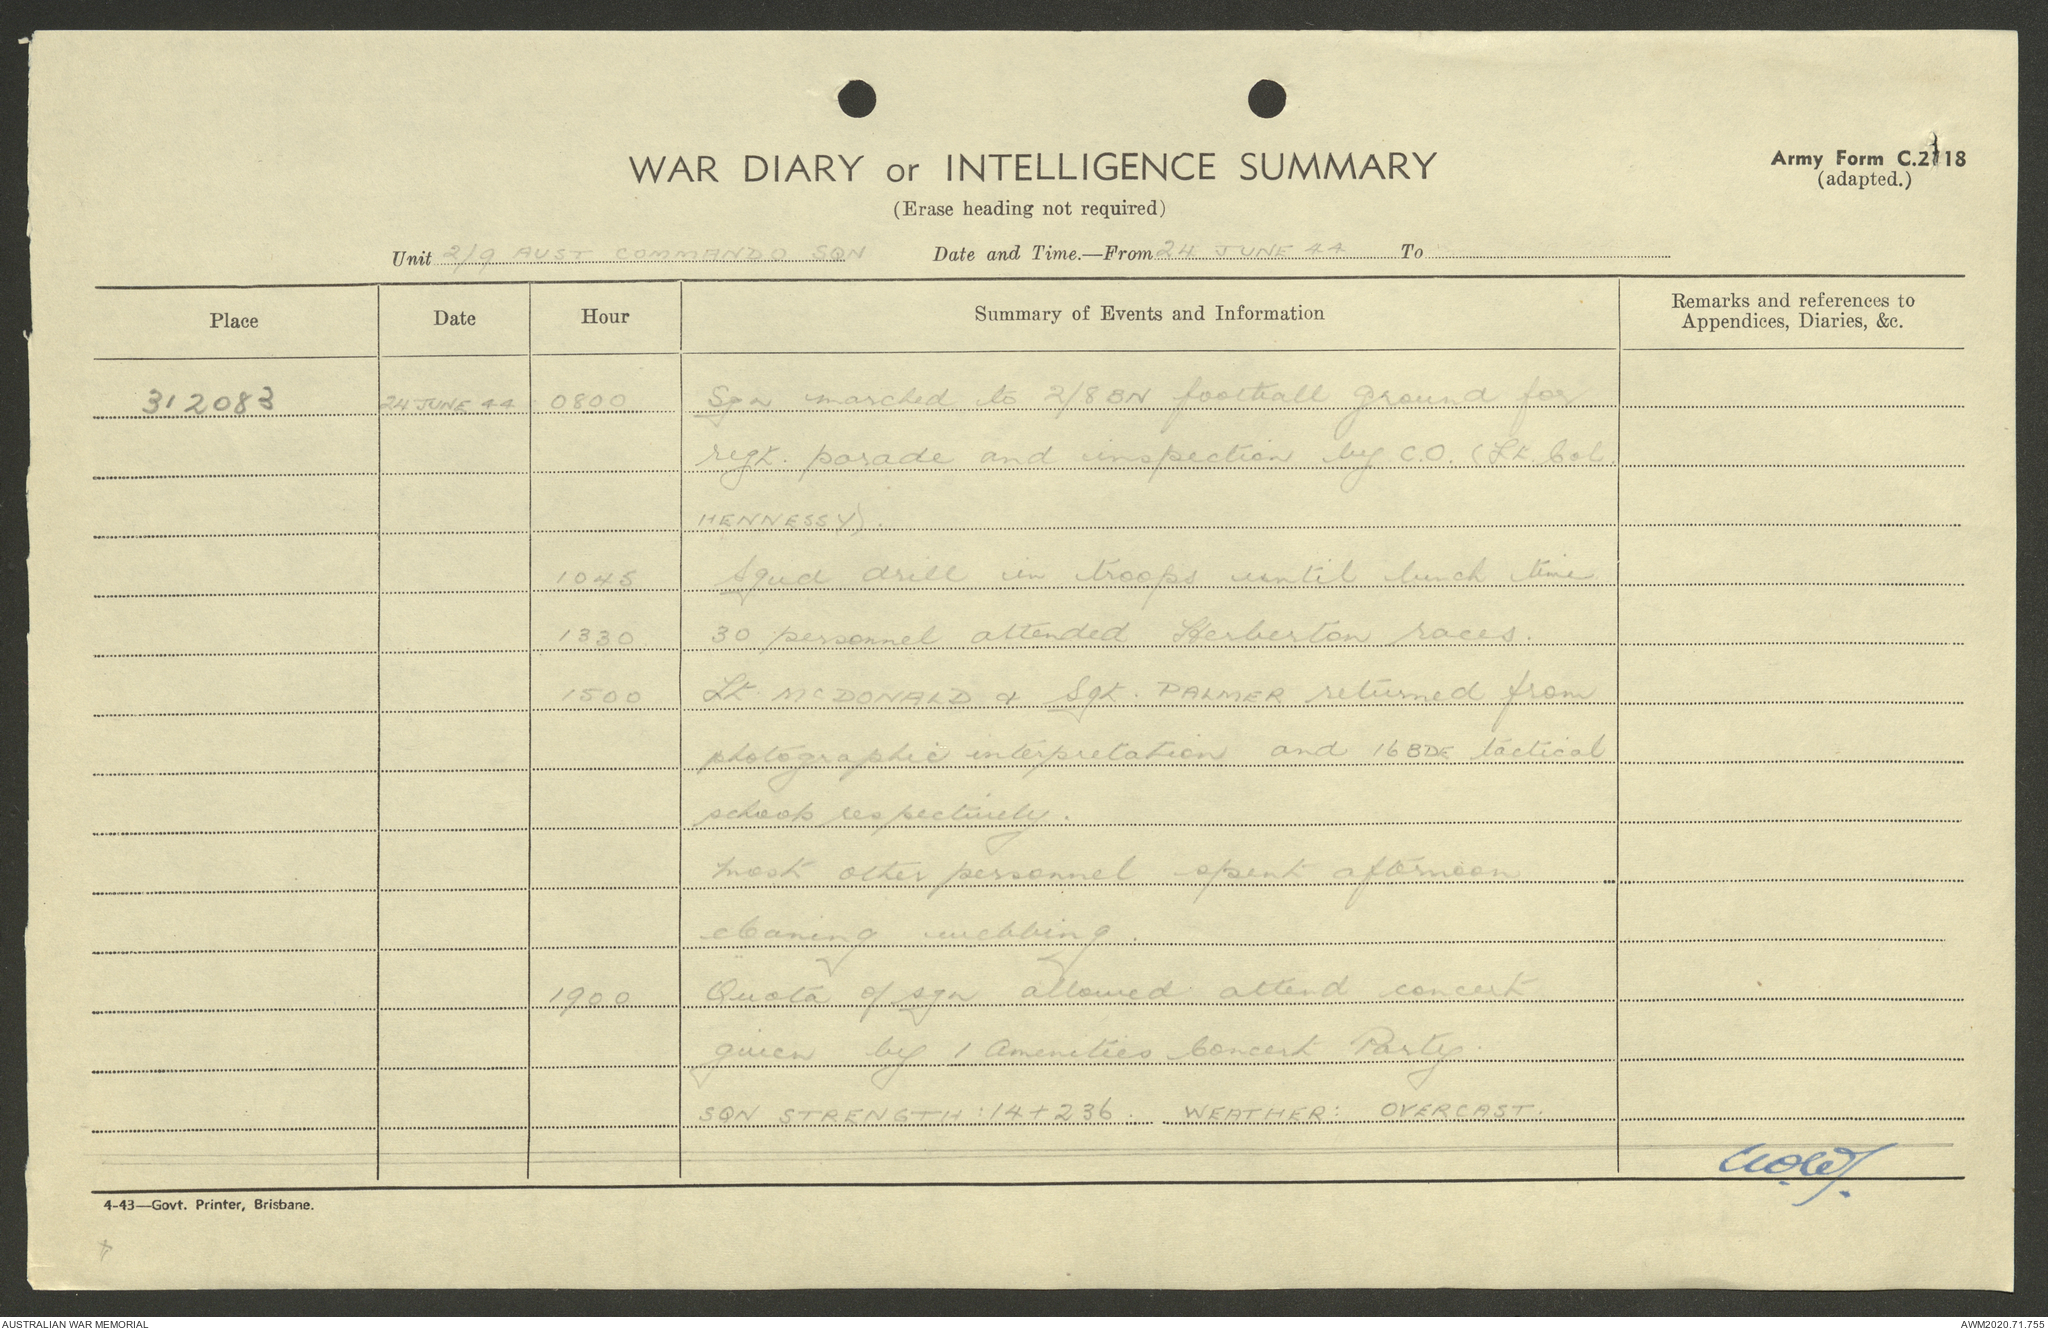 WAR DIARY or INTELLIGENCE SUMMARY
Army Form C.2118
(adapted.)
(Erase heading not required)
Unit 2/9 AUST COMMANDO SQN Date and Time.—From 24 JUNE 44 To
Place Date Hour Summary of Events and Information Remarks and references to
Appendices, Diaries, &c.
312083 24 JUNE 44 0800 Sqn marched to 2/8 BN football ground for
regt. parade and inspection by C.O. (Lt. Col.
HENNESSY).
1045 Squd drill in troops until lunch time
1330 30 personnel attended Herberton races.
1500 Lt. McDONALD & Sgt. PALMER returned from
photographic interpretation and 16 BDE tactical
schools respectively.
Most other personnel spent afternoon
cleaning webbing.
1900 Quota of sqn allowed attend concert
given by 1 Amenities Concert Party.
SQN STRENGTH: 14 + 236. WEATHER: OVERCAST.
4-43—Govt. Printer, Brisbane.
AUSTRALIAN WAR MEMORIAL
AWM2020.71.755